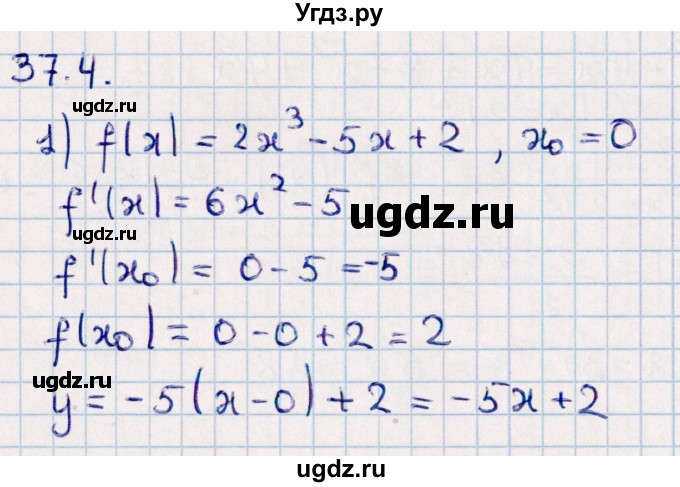 Угдз.ру
37.4.
ugdz.ru
1) f(x) = 2x³ - 5x + 2 , x₀ = 0
f'(x) = 6x² - 5
ugdz.ru
ugdz.ru
f'(x₀) = 0 - 5 = -5
f(x₀) = 0 - 0 + 2 = 2
ugdz.ru
y = -5(x - 0) + 2 = -5x + 2
ugdz.ru